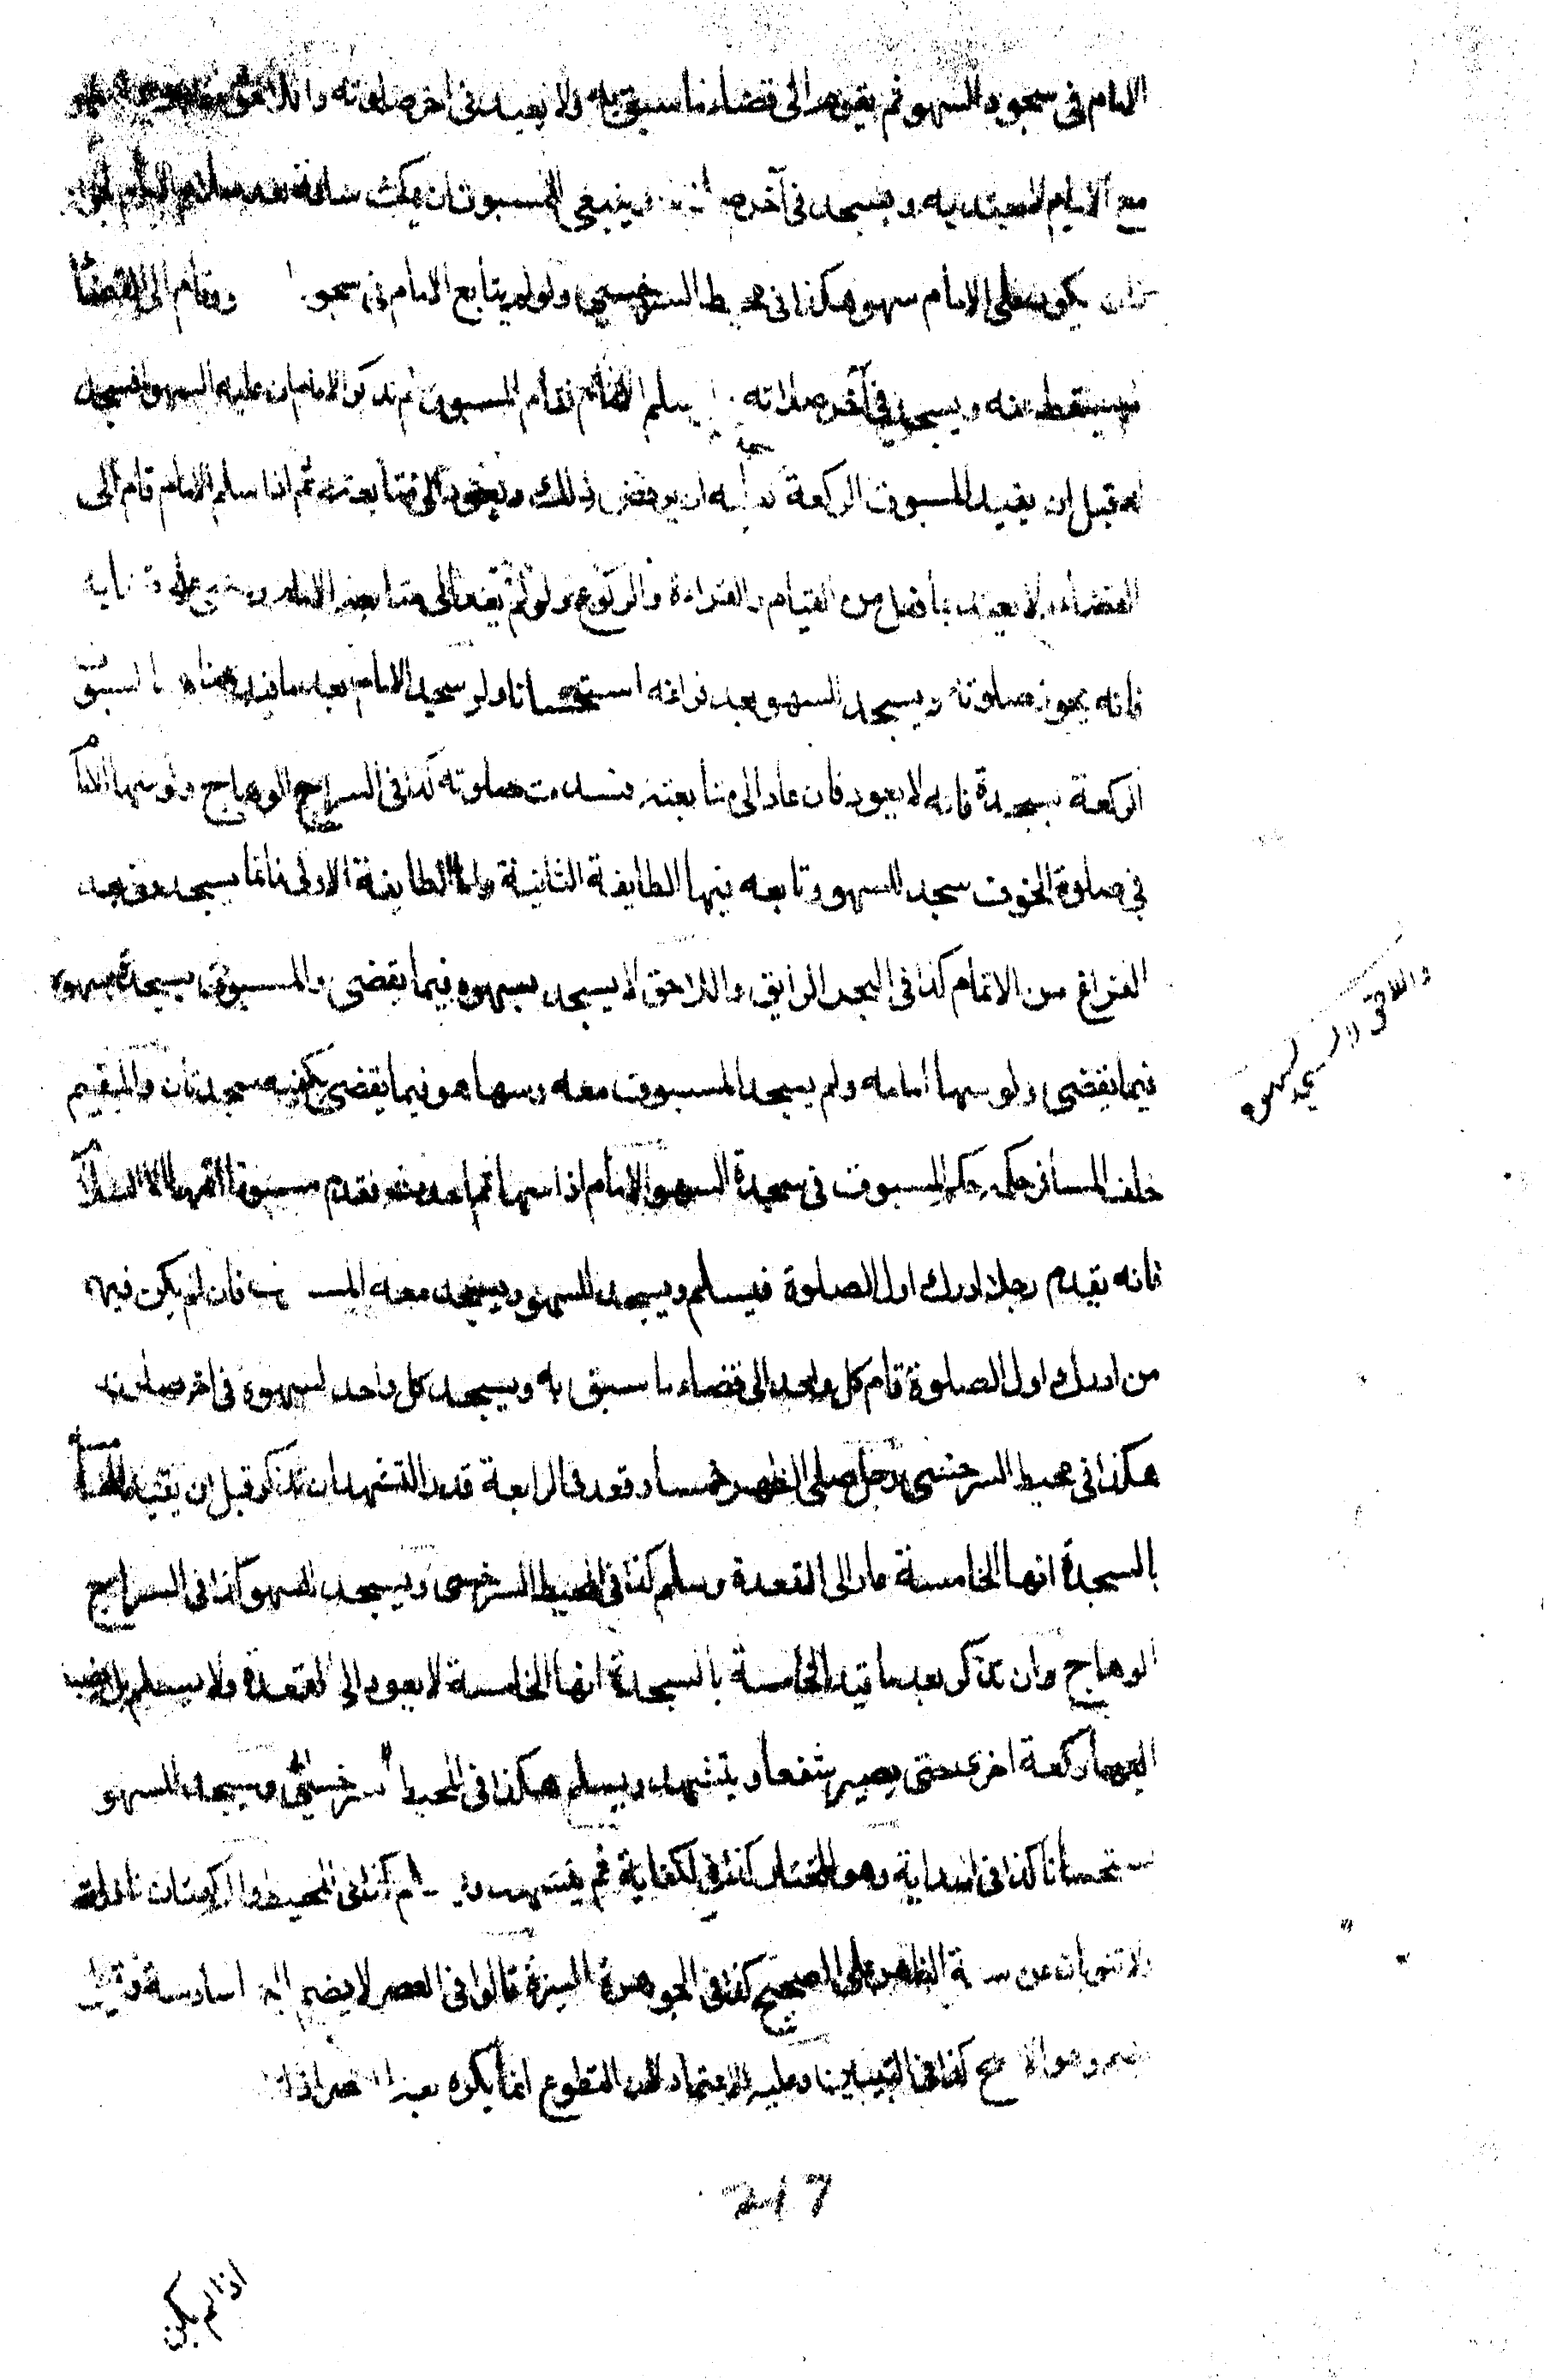 الامام فى سجود السهو ثم يقوم الى قضاء ما سبق به ولا يعيد فى اخر صلوته واللاحق
مع الامام لا يعتد به ويسجد فى آخر وينبغى للمسبوق ان يمكث ساعة بعد سلام الامام
يكون على الامام سهو هكذا فى محيط السرخسى ولو لم يتابع الامام فى سجود وقام الى القضا
يسقط عنه ويسجد فى آخر صلاته سلم الامام فقام المسبوق ثم تذكر الامام ان عليه السهو فسجد
له قبل ان يقيد المسبوق الركعة سجدة ان يرفض ذلك ويعود الى متابعته ثم اذا سلم الامام قام الى
القضاء ولا يعتد بما فعل من القيام والقراءة والركوع ولو لم يعد الى متابعة الامام
فانه يجوز صلوته ويسجد السهو بعد فراغه استحسانا ولو سجد الامام بعد ما قيد المسبوق
الركعة بسجدة فانه لا يعود فان عاد الى متابعته فسدت صلوته كذا فى السراج الوهاج ولو سها الامام
فى صلوة الخوف سجد للسهو وتابعه فيها الطايفة الثانية واما الطايفة الاولى فانما يسجد بعد
الفراغ من الاتمام كذا فى البحر الرايق واللاحق لا يسجد بسهوه فيما يقضى والمسبوق يسجد بسهوه
فيما يقضى ولو سها امامه ولم يسجد المسبوق معه وسها هو فيما يقضى يكفيه سجدتان والمقيم
خلف المسافر حكمه حكم المسبوق فى سجدة السهو الامام اذا سها ثم احدث فقدم مسبوقا اتمها الا السلام
فانه يقدم رجلا ادرك اول الصلوة فيسلم ويسجد للسهو ويسجد معه فان لم يكن فيهم
من ادرك اول الصلوة قام كل واحد الى قضاء ما سبق به ويسجد كل واحد لسهوه فى اخر صلوته
هكذا فى محيط السرخسى رجل صلى الظهر خمسا وقعد فى الرابعة قدر التشهد ان تذكر قبل ان يقيد الخامسة
بالسجدة انها الخامسة عاد الى القعدة وسلم كذا فى المحيط السرخسى ويسجد للسهو كذا فى السراج
الوهاج وان تذكر بعد ما قيد الخامسة بالسجدة انها الخامسة لا يعود الى القعدة ولا يسلم بل يضيف
اليها ركعة اخرى حتى يصير شفعا ويتشهد ويسلم هكذا فى المحيط السرخسى ويسجد للسهو
استحسانا كذا فى الهداية وهو المختار كذا فى الكفاية ثم يتشهد ويسلم كذا فى المحيط والركعتان نافلة
ولا تنوبان عن سنة الظهر على الصحيح كذا فى الجوهرة النيرة قالوا فى العصر لا يضم اليها سادسة وقيل
يضم وهو الاصح كذا فى التبيين وعليه الاعتماد لان التطوع انما يكره بعد العصر اذا
واللاحق لا يسجد لسهوه
217
اذا لم يكن